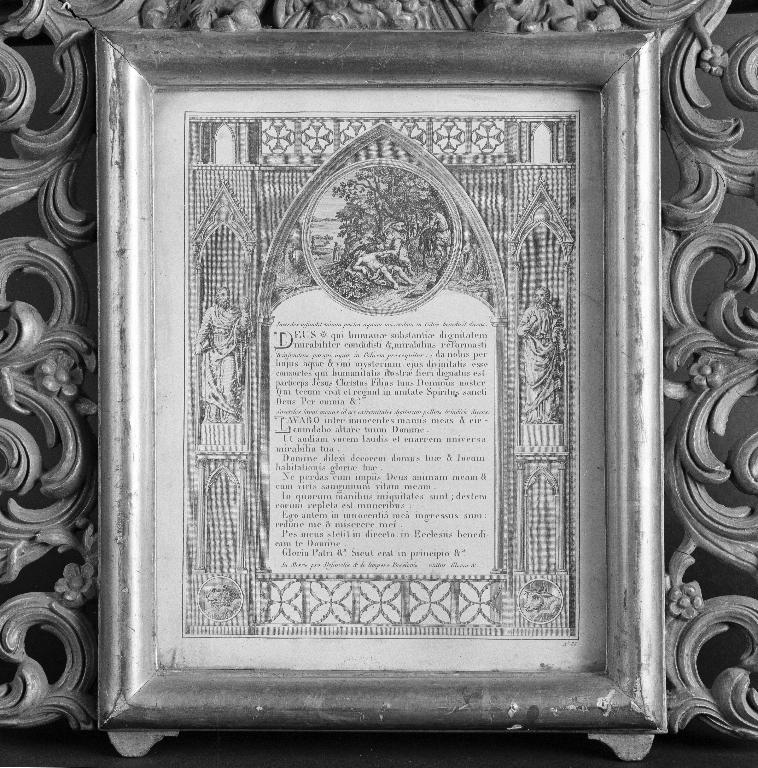 DEUS ✠ qui humanæ substantiæ dignitatem
mirabiliter condidisti & mirabilius reformasti
da nobis per
hujus aquæ & vini mysterium ejus divinitatis esse
consortes qui humanitatis nostræ fieri dignatus est
particeps Jesus Christus Filius tuus Dominus noster
Qui tecum vivit et regnat in unitate Spiritus sancti
Deus Per omnia &.ª
LAVABO inter innocentes manus meas & cir-
cumdabo altare tuum Domine.
Ut audiam vocem laudis et enarrem universa
mirabilia tua.
Domine dilexi decorem domus tuæ & locum
habitationis gloriæ tuæ.
Ne perdas cum impiis Deus animam meam &
cum viris sanguinum vitam meam.
In quorum manibus iniquitates sunt; dextera
eorum repleta est muneribus.
Ego autem in innocentiâ meâ ingressus sum:
redime me & miserere mei.
Pes meus stetit in directo, in Ecclesiis benedi-
cam te Domine.
Gloria Patri &.ª Sicut erat in principio &.ª